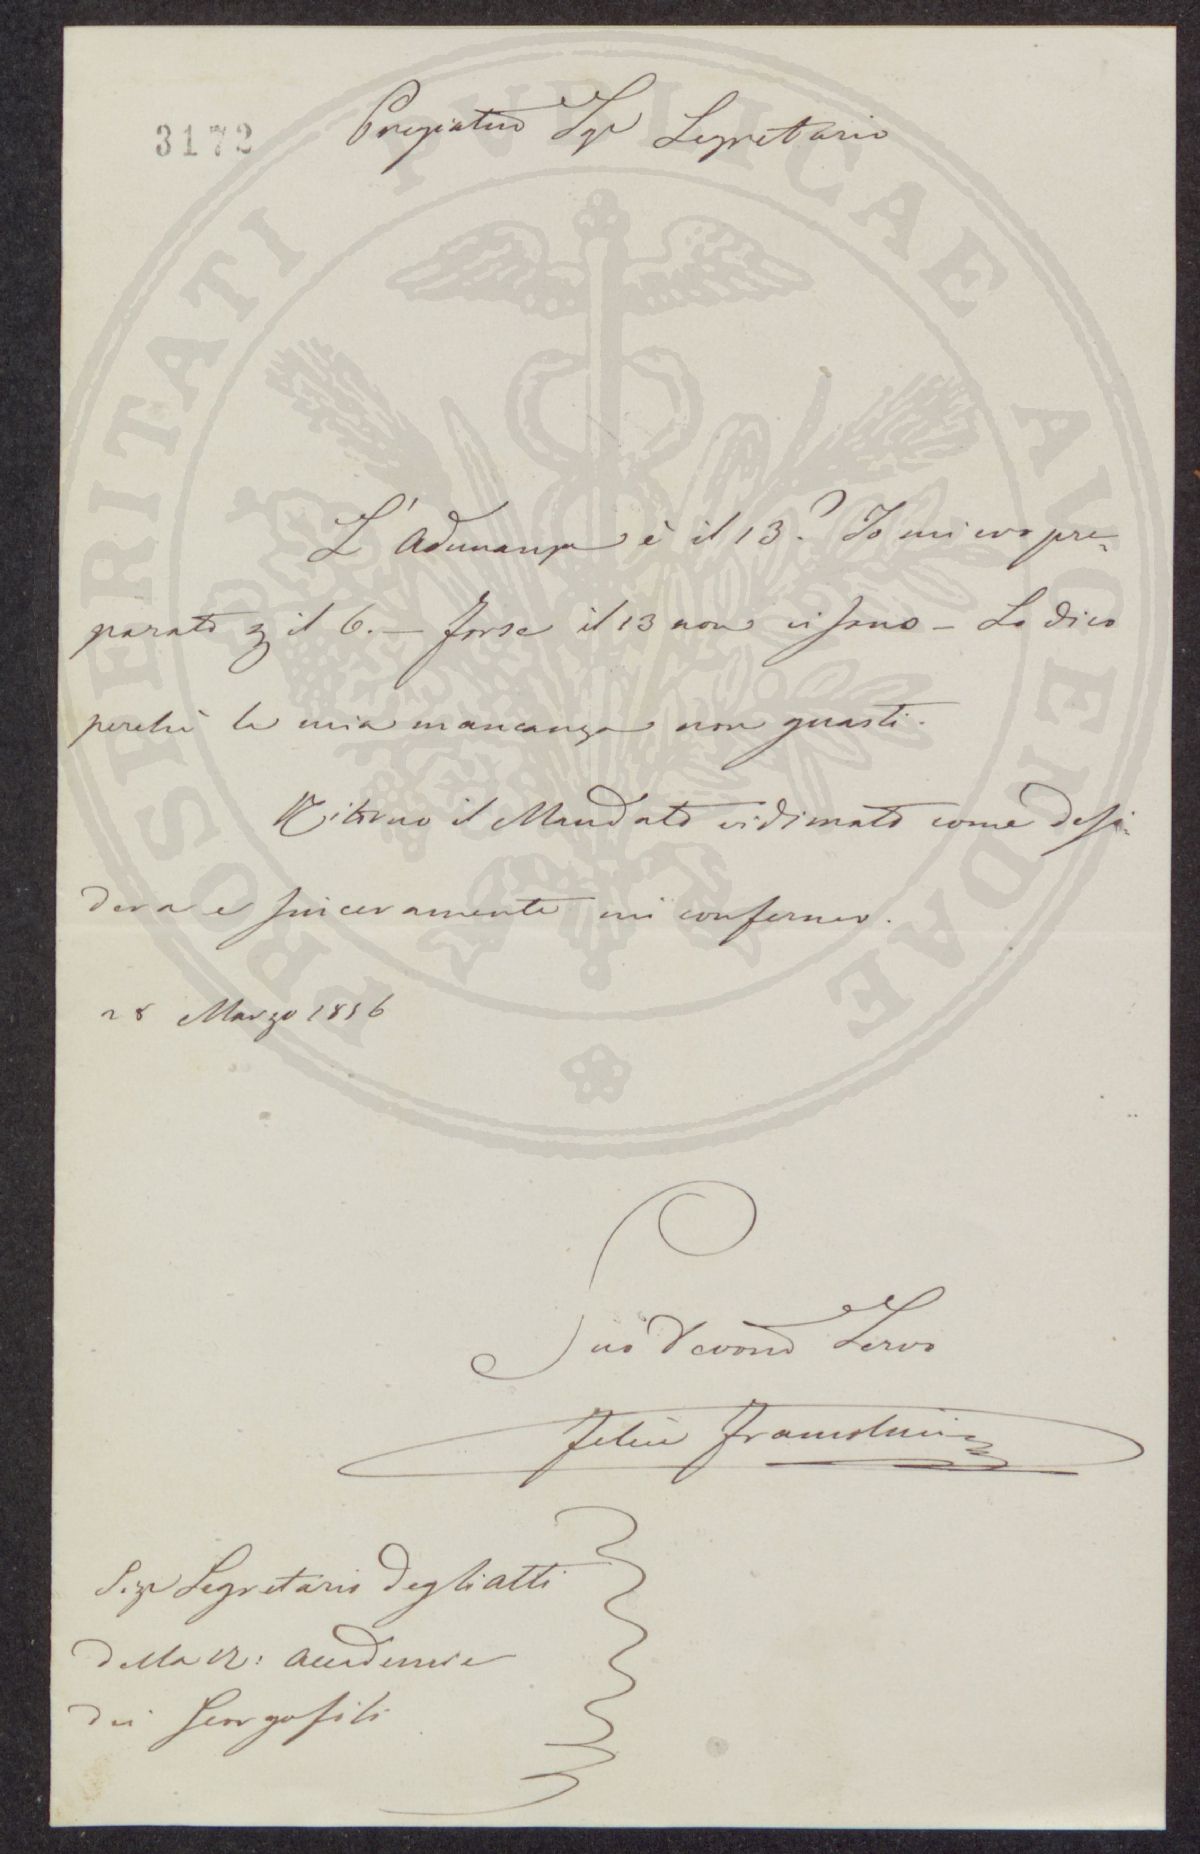 3172
Pregiatmo Sigr Segretario
L'Adunanza è il 13? Io mi ero pre-
parato p il 6. — Forse il 13 non ci sono — Lo dico
perchè la mia mancanza non guasti.
Ritorno il Mandato vidimato come desi-
dera e sinceramente mi confermo.
28 Marzo 1856
Suo Devomo Servo
Felice Francolini
Sigr Segretario degli Atti
della R: Accademia
dei Georgofili
PROSPERITATI PVBLICAE AVGENDAE